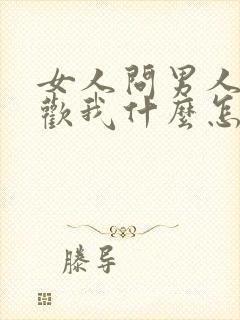 女人問男人
歡我什麼怎
滕导